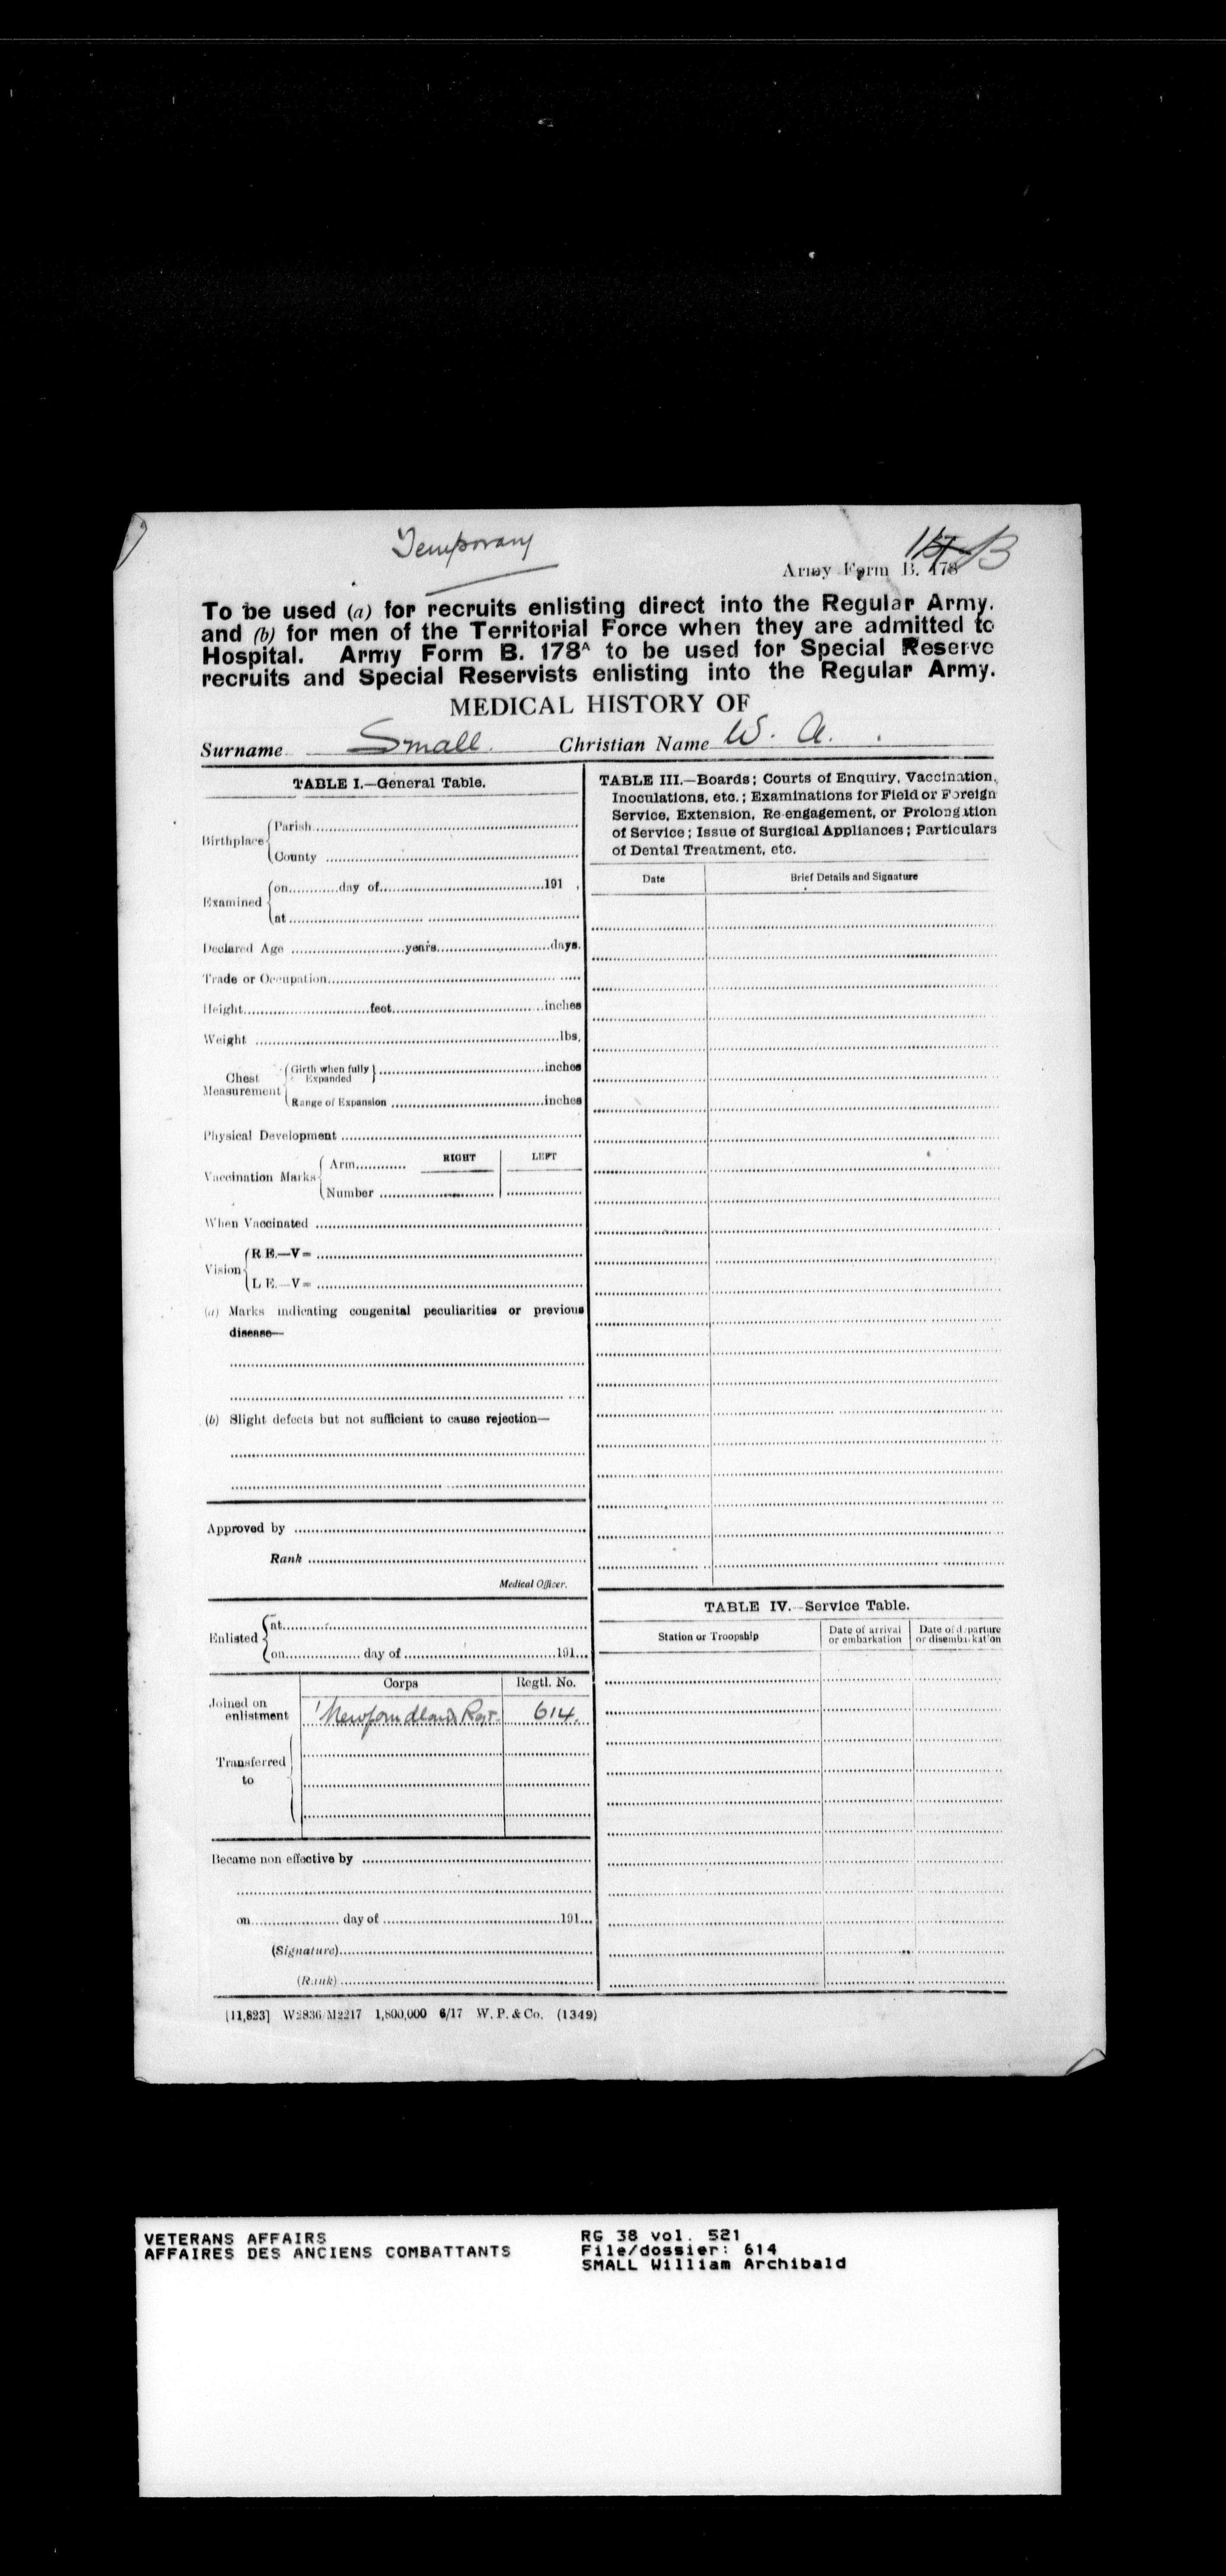 Temporary
Army Form B. 178
To be used (a) for recruits enlisting direct into the Regular Army.
and (b) for men of the Territorial Force when they are admitted to
Hospital. Army Form B. 178A to be used for Special Reserve
recruits and Special Reservists enlisting into the Regular Army.
MEDICAL HISTORY OF
Surname Small Christian Name W. A.
TABLE I.—General Table.
Birthplace
Parish
County
Examined
on day of 191
at
Declared Age years days.
Trade or Occupation
Height feet inches
Weight lbs.
Chest Measurement
Girth when fully Expanded inches
Range of Expansion inches
Physical Development
RIGHT LEFT
Vaccination Marks
Arm
Number
When Vaccinated
Vision
R E.—V=
L E.—V=
(a) Marks indicating congenital peculiarities or previous
disease—
(b) Slight defects but not sufficient to cause rejection—
Approved by
Rank
Medical Officer.
Enlisted
at
on day of 191
Corps Regtl. No.
Joined on
enlistment
Newfoundland Regt. 614.
Transferred
to
Became non effective by
on day of 191
(Signature)
(Rank)
TABLE III.—Boards; Courts of Enquiry, Vaccination,
Inoculations, etc.; Examinations for Field or Foreign
Service, Extension, Re-engagement, or Prolongation
of Service; Issue of Surgical Appliances; Particulars
of Dental Treatment, etc.
Date Brief Details and Signature
TABLE IV.—Service Table.
Station or Troopship
Date of arrival
or embarkation
Date of departure
or disembarkation
[11,823] W2836/M2217 1,800,000 6/17 W. P. & Co. (1349)
VETERANS AFFAIRS
AFFAIRES DES ANCIENS COMBATTANTS
RG 38 vol. 521
File/dossier: 614
SMALL William Archibald